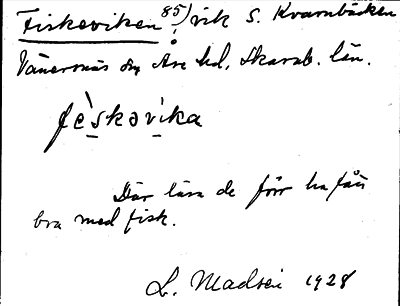 Fiskeviken 85) vik S. Kvarnbäcken
Vänersnäs sn, Åse hd, Skarab. län.
fèskəvika
Där lära de förr ha fått
bra med fisk.
L. Madsei 1928